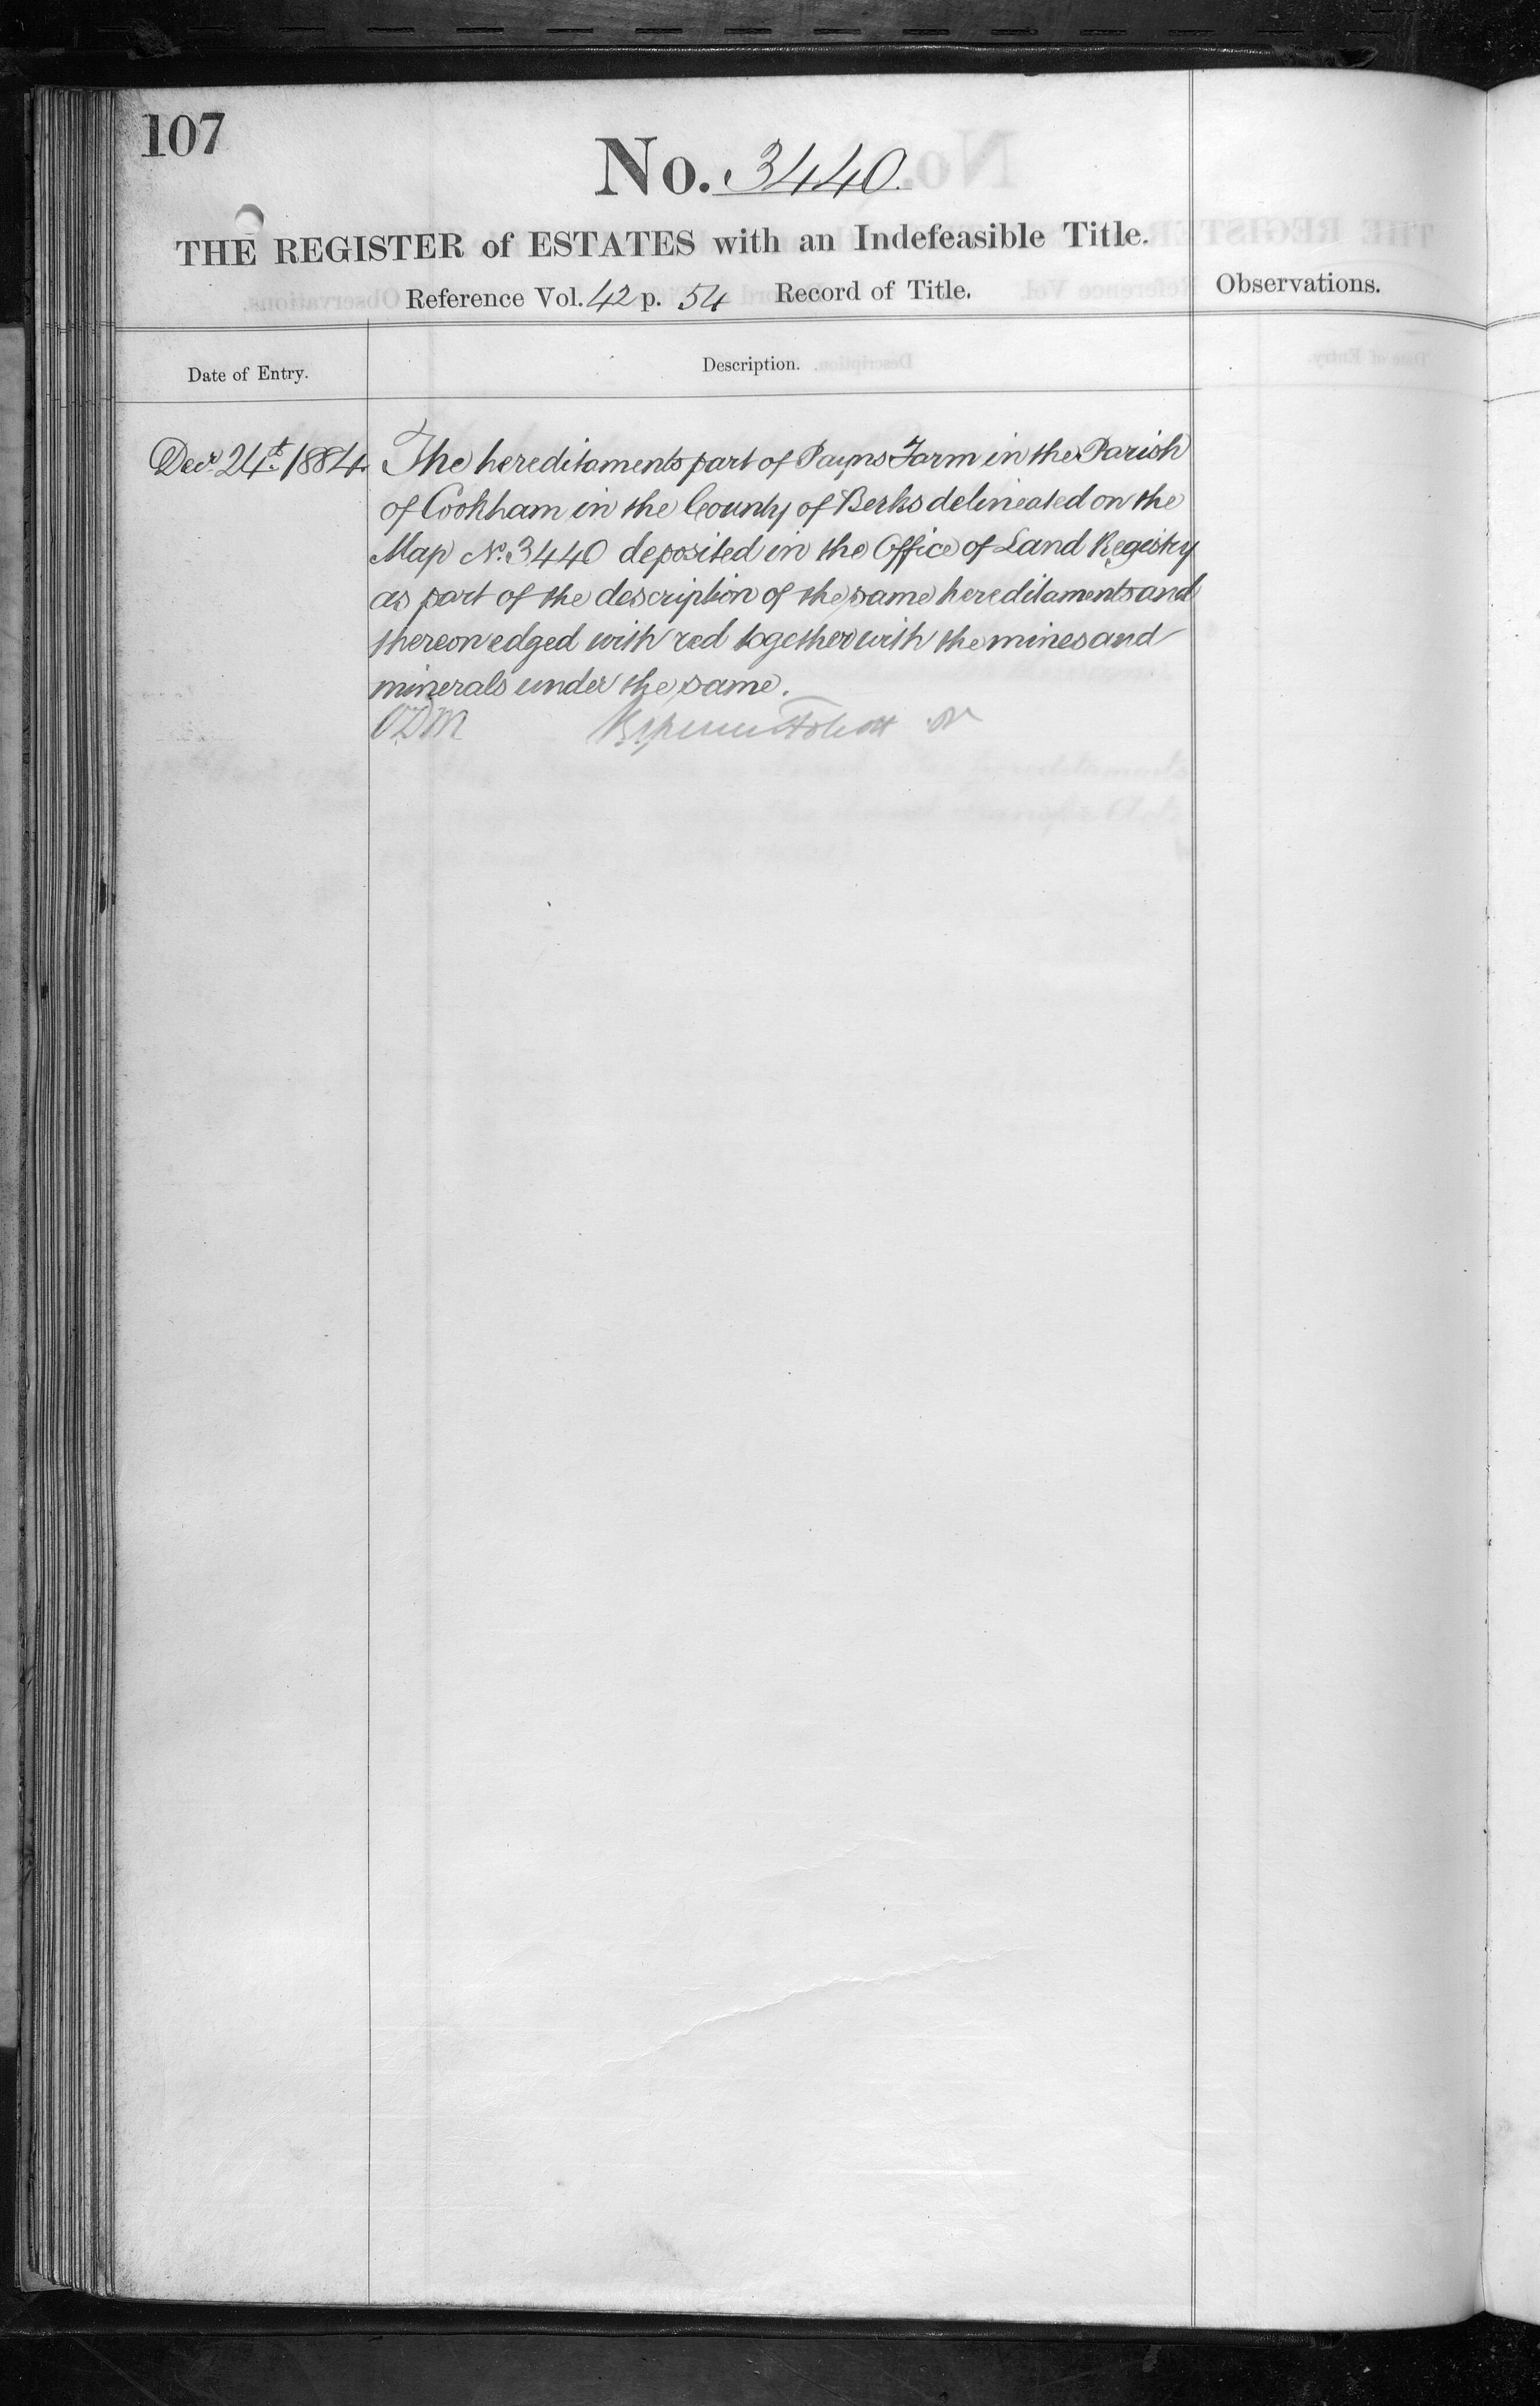 107
No. 3440.
THE REGISTER of ESTATES with an Indefeasible Title.
Reference Vol. 42 p. 54 Record of Title.
Observations.
Date of Entry.
Description.
Decr. 24t. 1884. The hereditaments part of Payns Farm in the Parish
of Cookham in the County of Berks delineated on the
Map No. 3440 deposited in the Office of Land Registry
as part of the description of the same hereditaments and
thereon edged with red together with the mines and
minerals under the same.